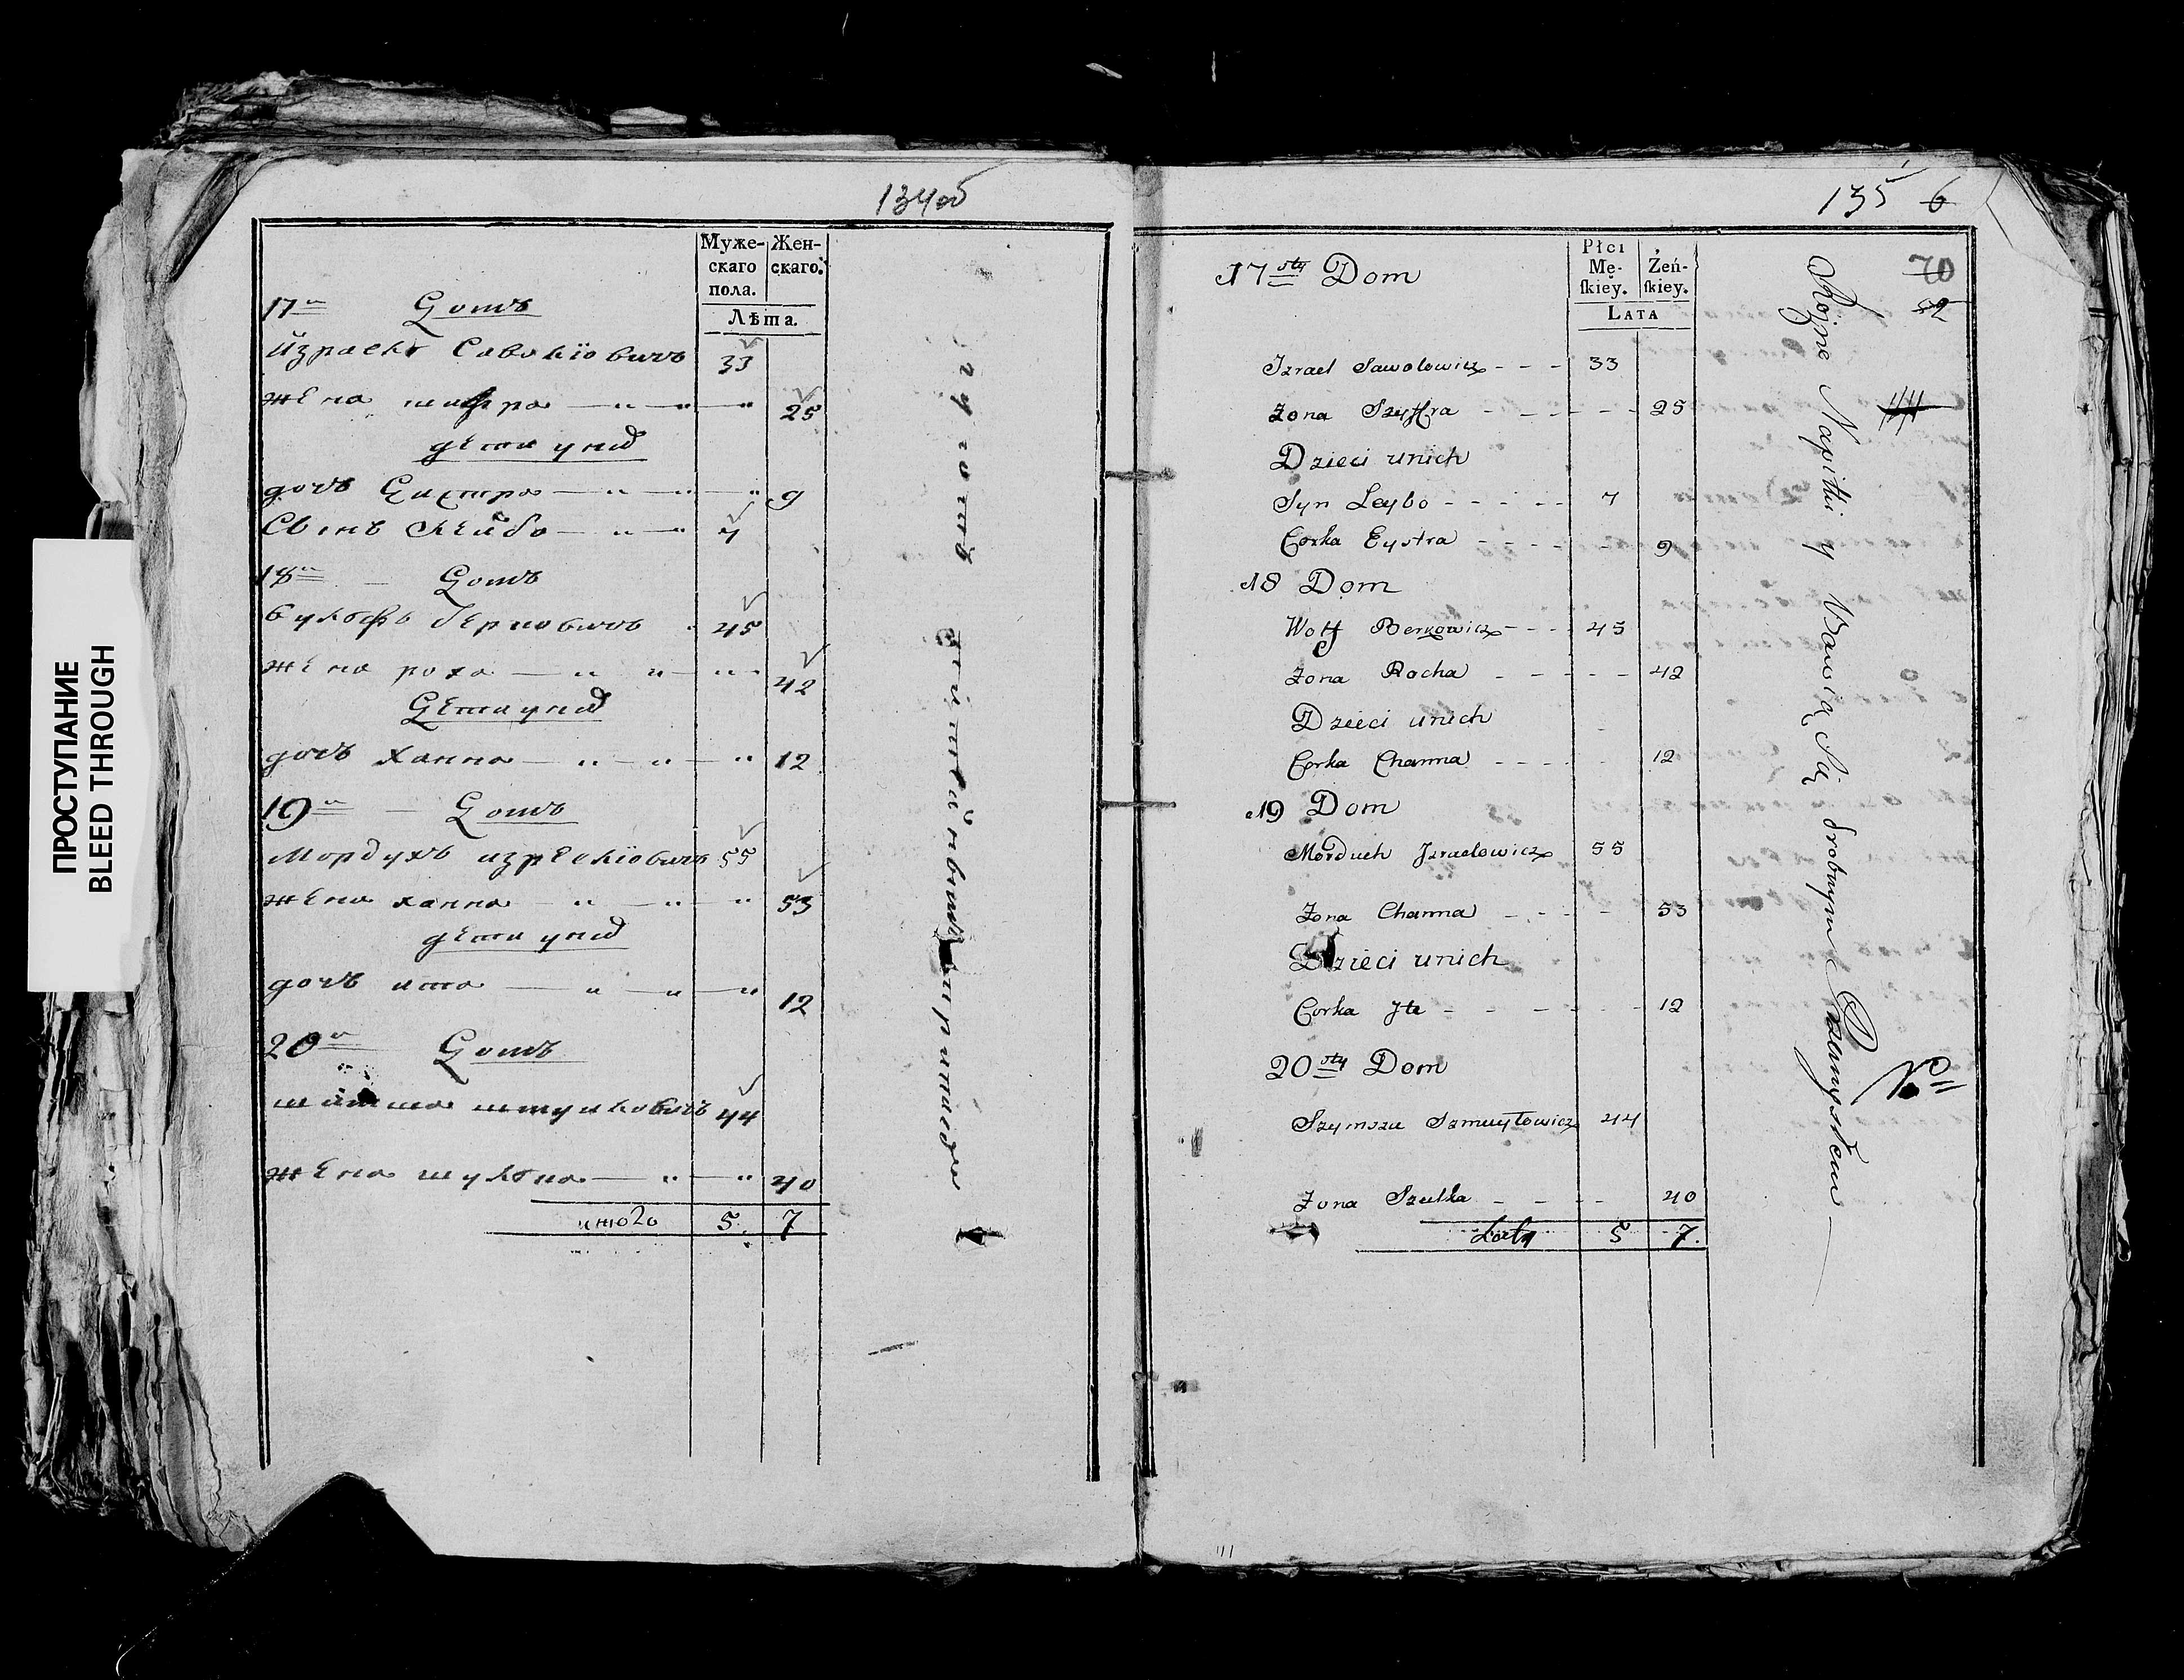 ПРОСТУПАНИЕ
BLEED THROUGH
134об
Муже-
скаго
пола.
Жен-
скаго.
Лѣта.
17й Домъ
Израель Саволiовичъ 33
жена шифра 25
дети унихъ
дочъ Еистра 9
Сынъ Лейбо 7
18й Домъ
вульфъ Берковичъ 45
жена роха 42
Дети унихъ
дочъ ханна 12
19й Домъ
Мордухъ израелiовичъ 55
жена ханна 53
дети унихъ
дочъ ита 12
20й Домъ
44
жена 40
итого 5 7
135 6
70
52
44
Płci
Mę-
ſkiey.
Żeń-
ſkiey.
LATA
17sty Dom
Izrael Sawolowicz 33
Zona Szyffra 25
Dzieci unich
Syn Leybo 7
Corka Eystra 9
18 Dom
Wolf Berkowicz 45
Zona Rocha 42
Dzieci unich
Corka Channa 12
19 Dom
Morduch Izraelowicz 55
Zona Channa 53
Dzieci unich
Corka Ita 12
20sty Dom
Szmuyłowicz 44
Zona 40
5 7
Rożne Napitki y Bawią Się drobnym Przemysłem